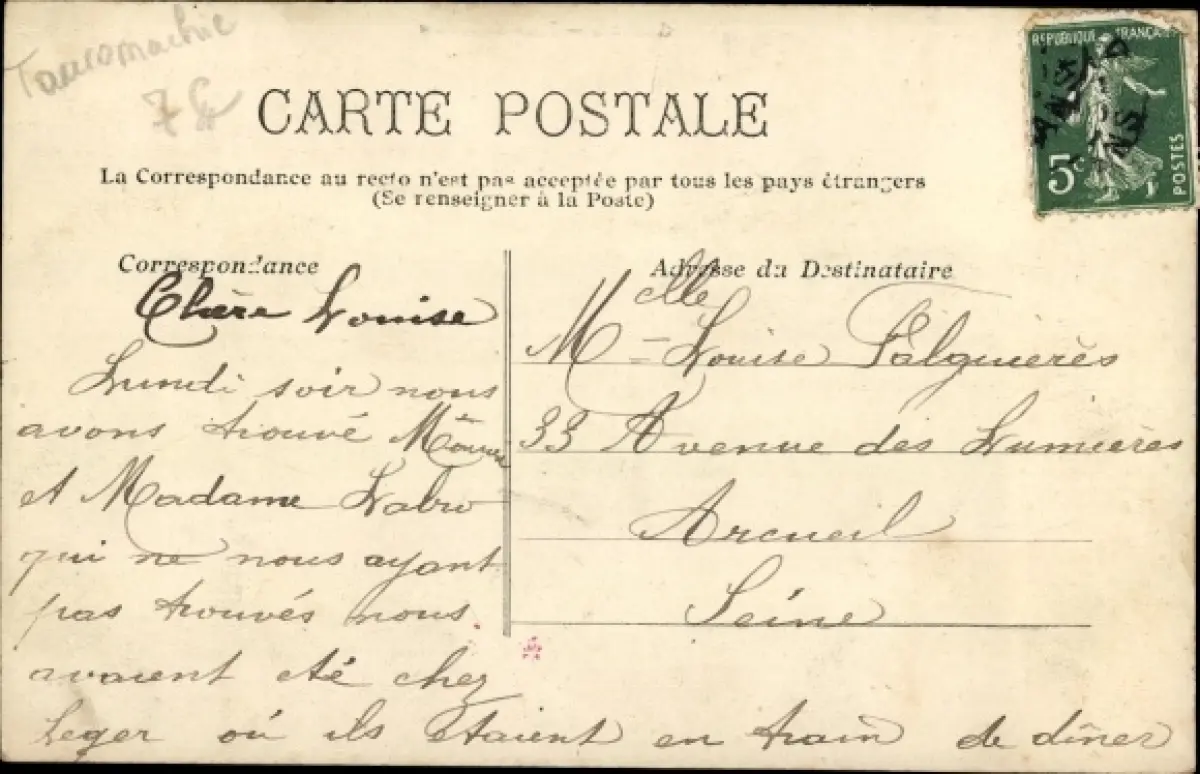 Tauromachie
7€
CARTE POSTALE
La Correspondance au recto n'est pas acceptée par tous les pays étrangers
(Se renseigner à la Poste)
RÉPUBLIQUE FRANÇAISE
5c
POSTES
Correspondance
Chère Louise
Lundi soir nous
avons trouvé
et Madame Labro
qui ne nous ayant
pas trouvés nous
avaient eté chez
Leger où ils étaient en train de dîner
Adresse du Destinataire
Melle Louise Falguierès
33 Avenue des Lumières
Arcueil
Seine